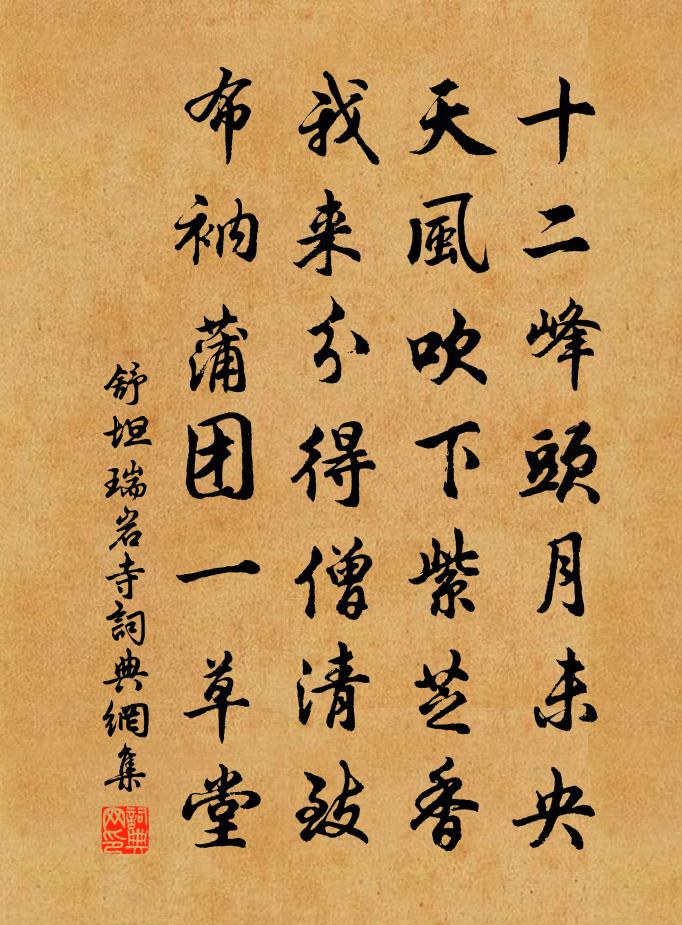 十二峰頭月未央
天風吹下紫芝香
我来分得僧清致
布衲蒲团一草堂
舒坦瑞岩寺詞典網集
詞典网印